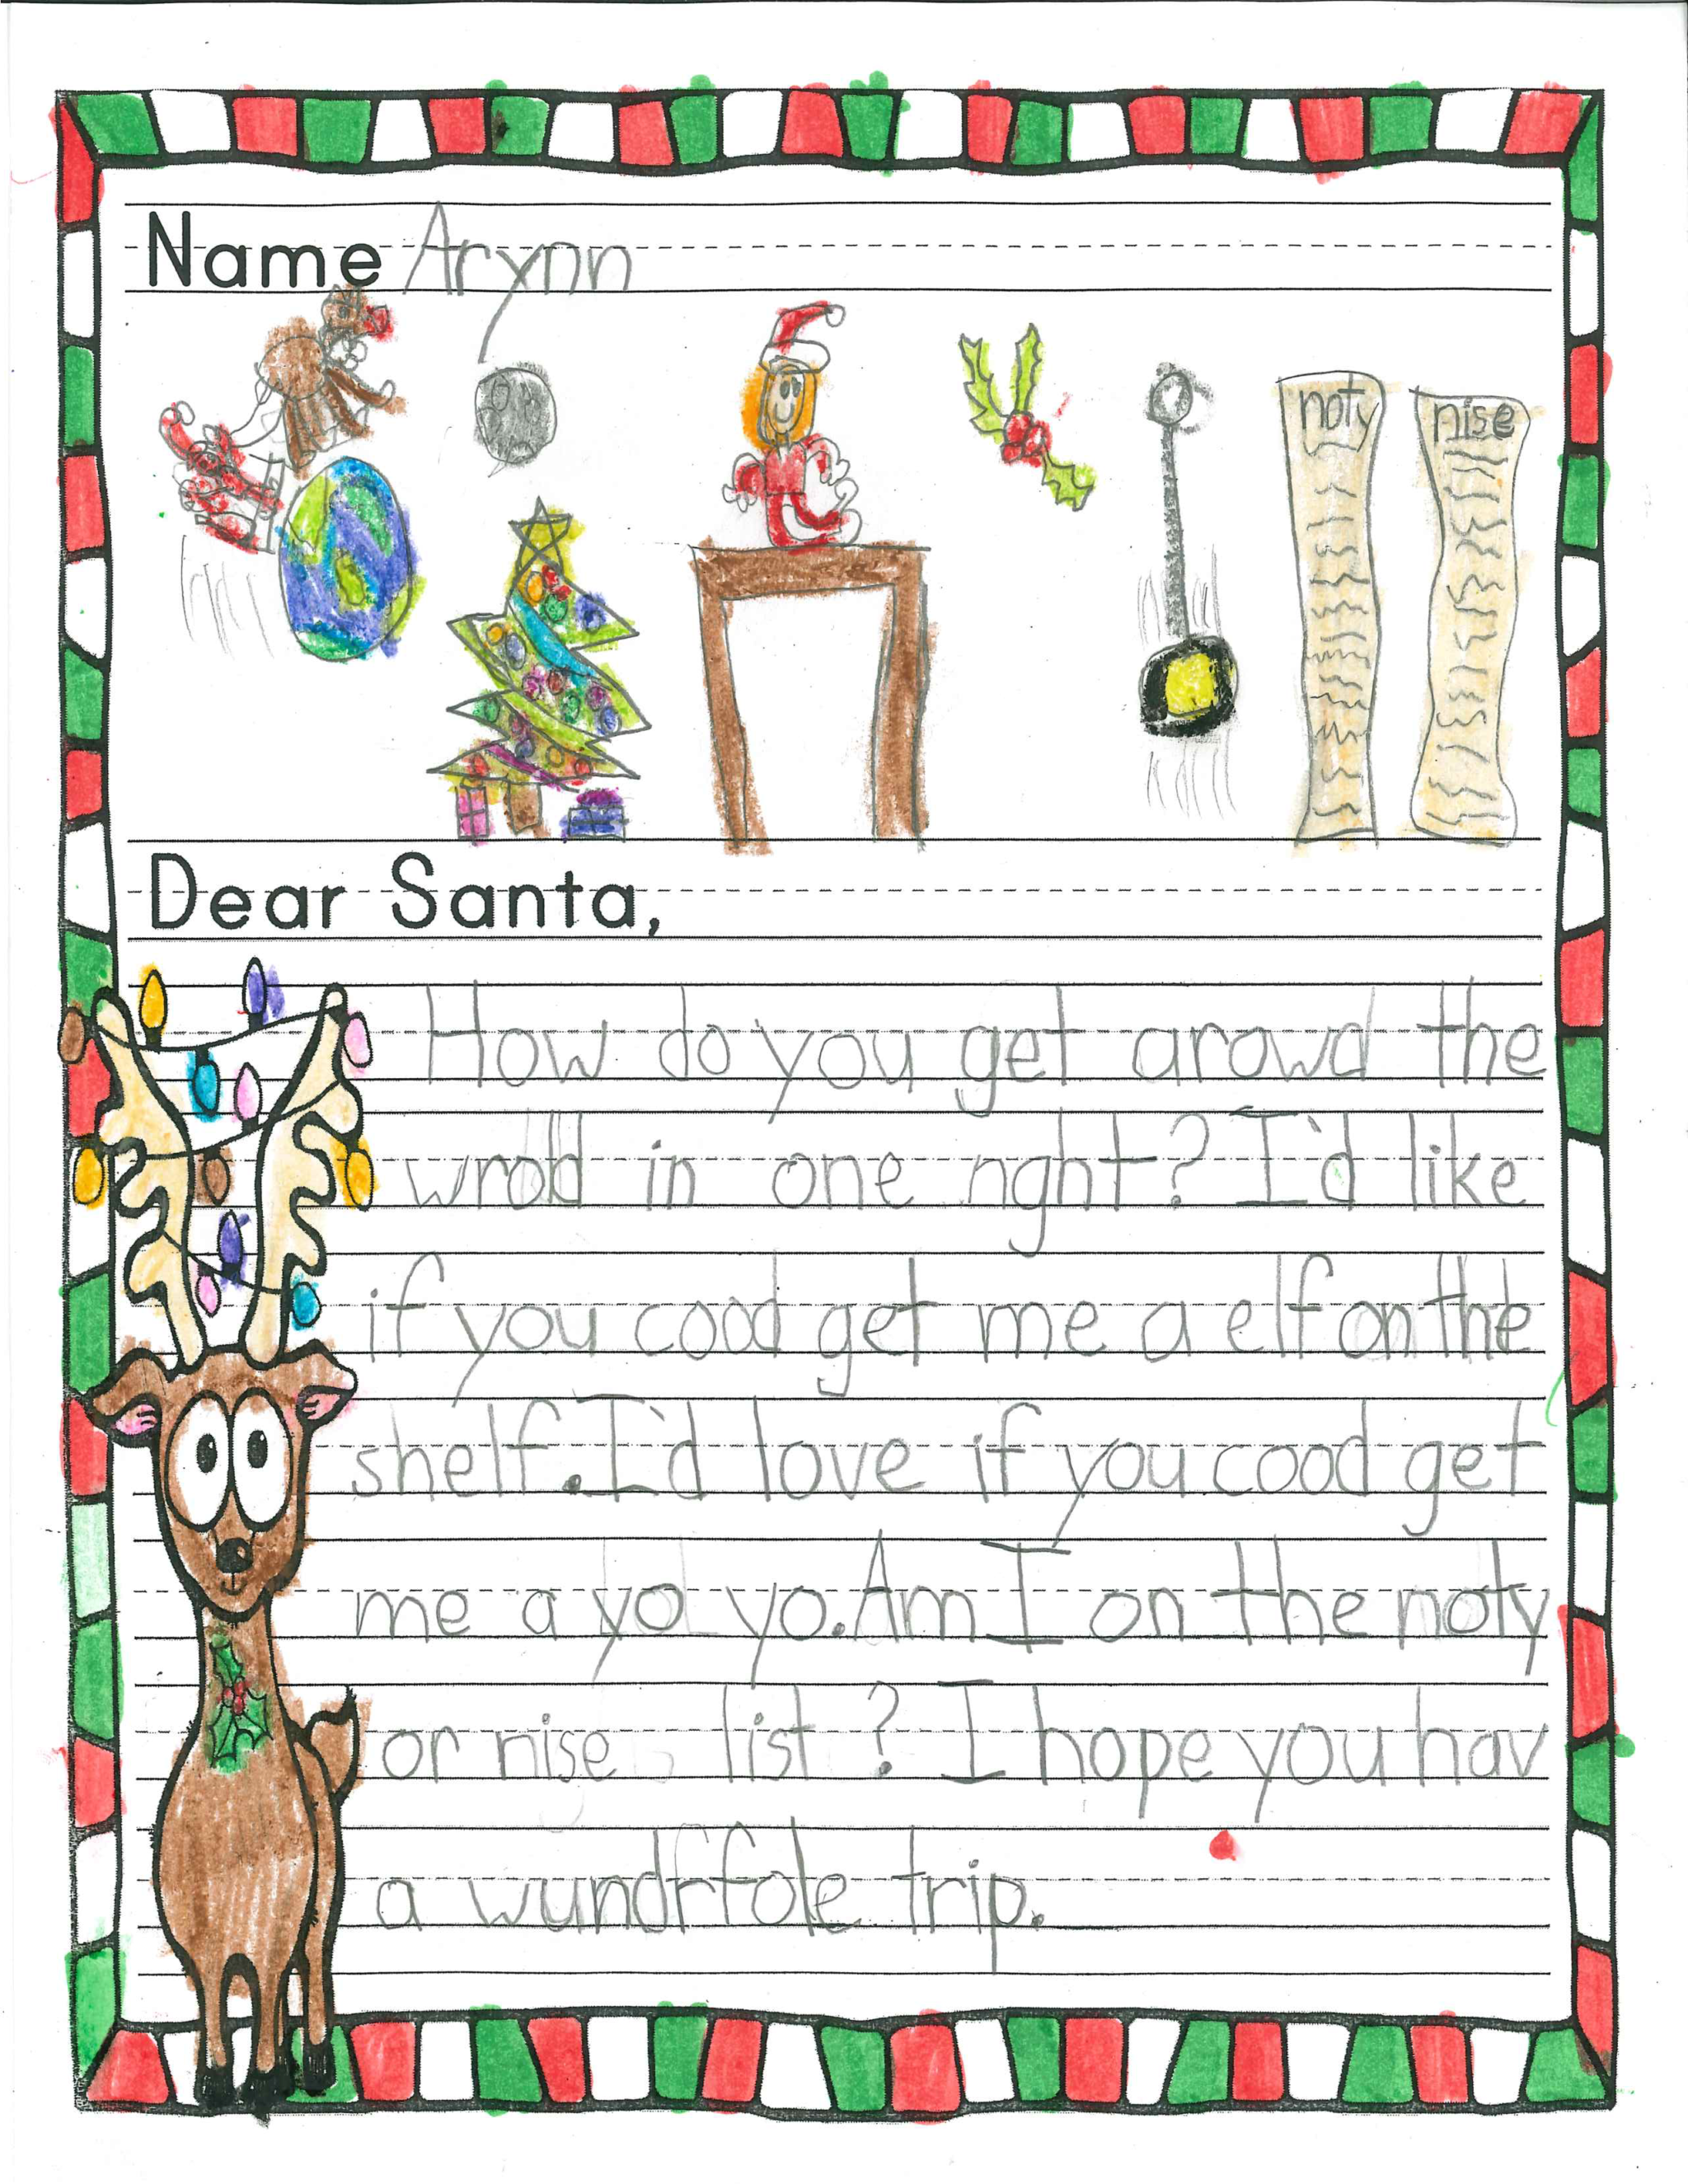 Name Arynn
noty nise
Dear Santa,
How do you get arowd the
wrold in one night? I'd like
if you cood get me a elf on the
shelf. I'd love if you cood get
me a yo yo. Am I on the noty
or nise list? I hope you hav
a wundrfole trip.